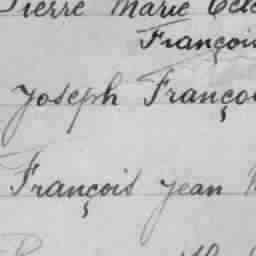 Pierre Marie
François
Joseph François
François Jean